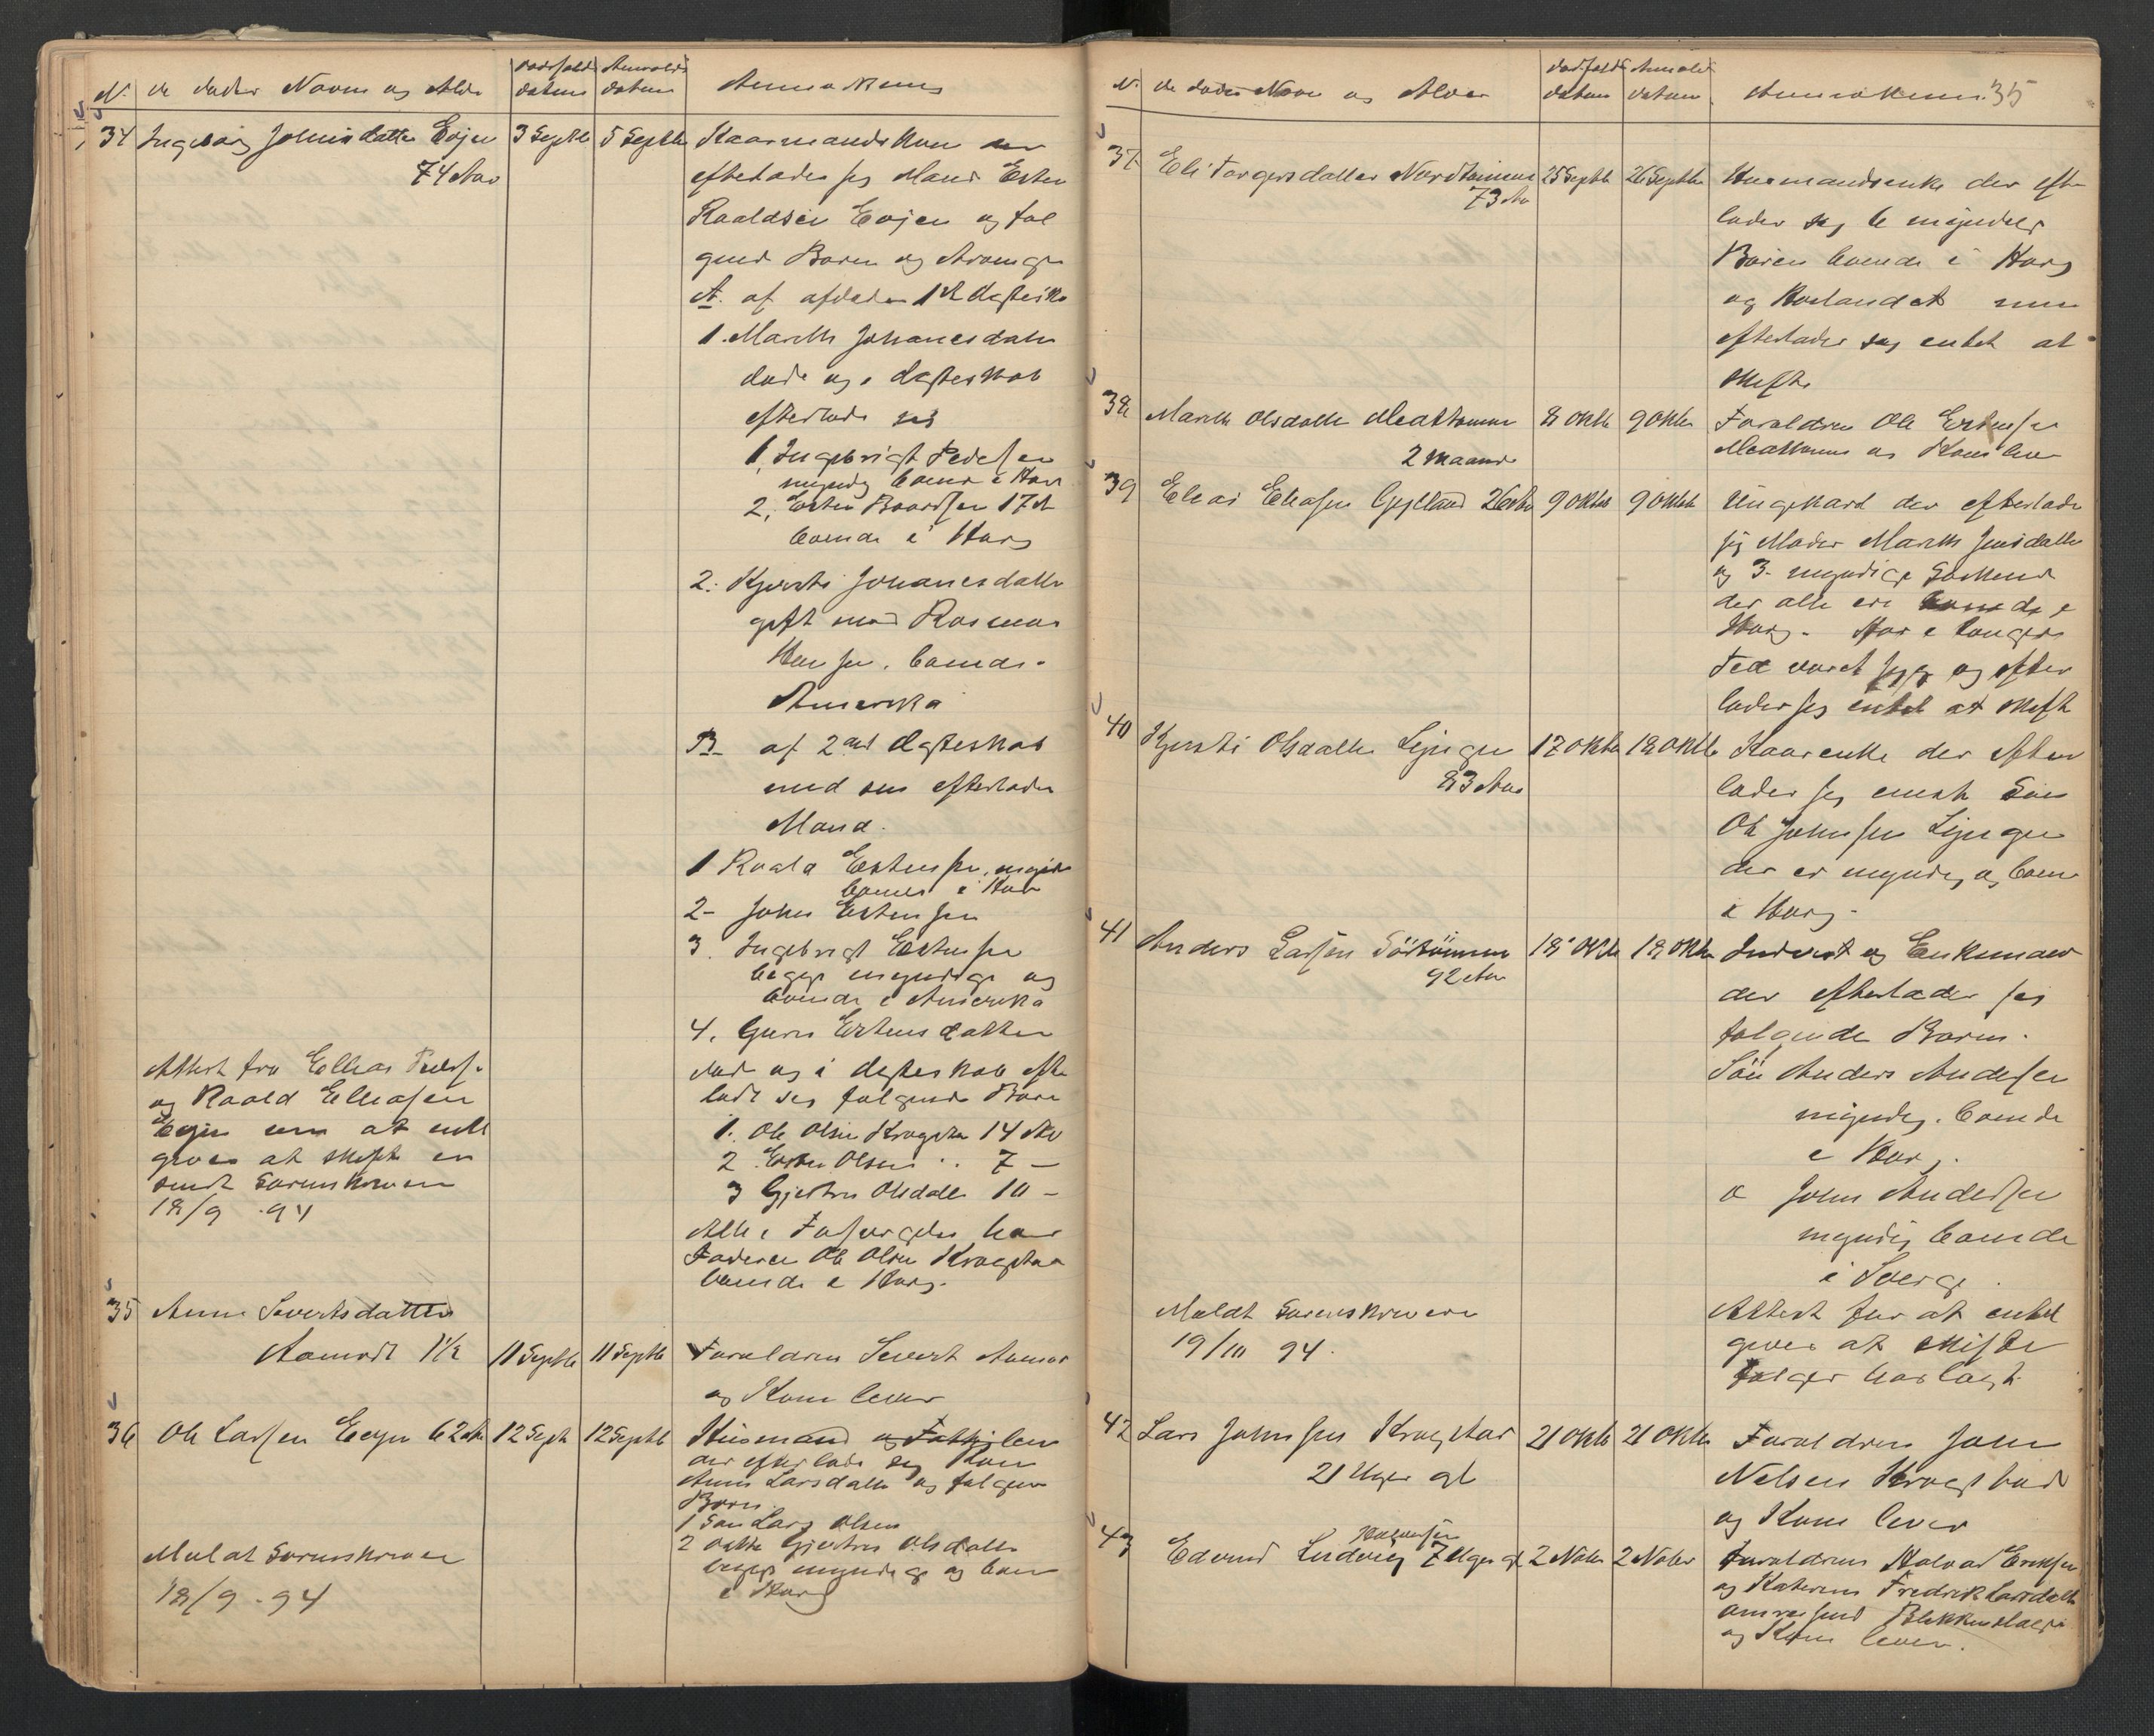 N. de dødes Navn og Alder
dødsfalds datum
Anmeldt datum
Anmerkning
34 Ingeborg Johnsdatter Evjen
74 Aar
3 Septb
5 Septb
Kaarmandskone
efterlader sig Mand Esten
Roaldsen Evjen og føl
gende Børn og
A. af afdødes 1ste Ægtesk
1. Marith Johanesdatter
døde og i Ægteskab
efterlode sig
1. Ingebrigt Pedersen
myndig boende i Horg
2. Esten Baardsen 17 A
boende i Horg
2. Kjersti Johanesdatter
gift med Rasmus
Hansen. boende.
Amerika
B af 2det Ægteskab
med sin efterladte
Mand.
1 Roald Estensen, myndig
boende i Horg
2- John Estensen
3. Ingebrigt Estensen
begge myndige og
boende i Amerika
4. Guru Estensdatter
død og i Ægteskab efter
lodt sig følgende Børn
1. Ole Olsen Krogsta 14 Aar
2 Esten Olsen .. 7 –
3 Gjertru Olsdatter 10 –
Alle i Forsørgelse hos
Faderen Ole Olsen Krogstad
boende i Horg.
Attest fra Ellias Peders.
og Roald Eliasen
Evjen om at intet
gives at skifte er
sendt Sorenskriveren
18/9 .94
35 Anne Severtsdatter
Aamodt 1½
11 Septb
11 Septb
Foreldren Severt Aamot
og Kone lever
36 Ole Larsen Evjen 62 Aar
12 Septb
12 Septb
Husmand og Fattiglem
der efterlader sig Kone
Anne Larsdatter og følgende
Børn.
1 Søn Lars Olsen
2 Datter Gjertru Olsdatter
begge myndige og boende
i Horg
Meldt Sorenskriveren
18/9 . 94
N. de dødes Navn og Alder
dødsfalds datum
Anmeldt datum
Anmerkning 35
37 Eli Torgersdatter Nordtømme
73 Aar
25 Septb
26 Septb
Husmandsenke der efter
lader sig 6 myndige
Børn boende i Horg
og Høilandet men
efterlader sig entet at
skifte
38 Marith Olsdatter
2 Maaned
8 Oktb
9 Oktb
Foreldren Ole Estensen
og Kone lever
39 Elias Eliasen Gylland 26 Aar
9 Oktob
9 Oktb
Ungekarl der efterlader
sig Moder Marith Jensdatter
og 3 myndige Søskende
der alle ere boende i
Horg. Har i længere
Tid været syg og efter
lader sig entet at skift
40 Kjersti Olsdatter Lynge
83 Aar
17 Oktb
18 Oktb
Kaarenke der efter
lader sig eneste Søn
Ole Johnsen Lynge
der er myndig og boende
i Horg.
41 Anders Larsen Sørtømme
92 Aar
18 Oktb
18 Oktb
Inderst og Enkemand
der efterlader sig
følgende Børn.
Søn Anders Andersen
myndig. boende
i Horg.
o John Andersen
myndig boende
i Sverge.
Attest for at entet
gives at skifte
følger vedlagt
Meldt Sorenskriveren
19/10 94.
42 Lars Johnsen Krogstad
21 Uger gl
21 Oktb
21 Oktb
Foreldren John
Nelsen Krogstad
og Kone lever
43 Edvard Ludvig Halvorsen 7 Uger gl
2 Nobr
2 Nobr
Foreldren Halvor Eriksen
og Katrine Fredrik Larsdatter
omreisend Blikkenslager
og Kone lever.